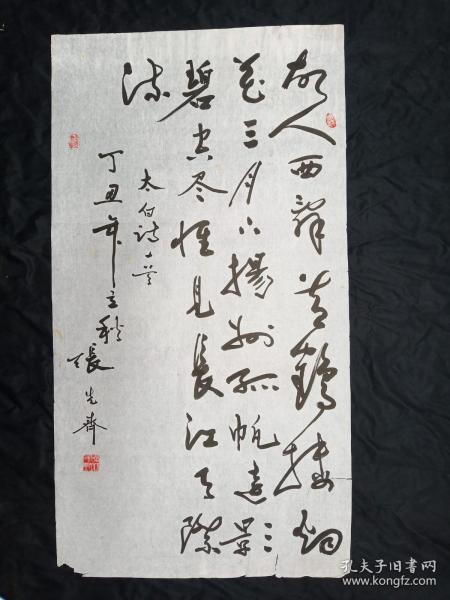 故人西辞黄鶴楼烟
花三月下揚州孤帆遠影
碧空尽惟見長江天際
流
太白诗一首
丁丑年立秋
張先齊
孔夫子旧书网
www.kongfz.com